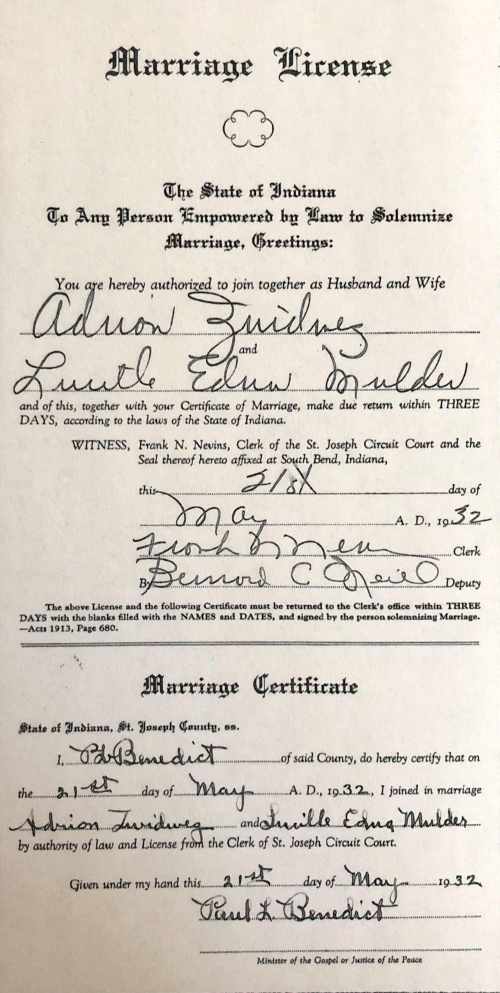 Marriage License
The State of Indiana
To Any Person Empowered by Law to Solemnize
Marriage, Greetings:
You are hereby authorized to join together as Husband and Wife
Adrion Zuidweg
and
Lucille Edna Mulder
and of this, together with your Certificate of Marriage, make due return within THREE
DAYS, according to the laws of the State of Indiana.
WITNESS, Frank N. Nevins, Clerk of the St. Joseph Circuit Court and the
Seal thereof hereto affixed at South Bend, Indiana,
this 21st day of
May A. D., 1932
Frank N Nevins Clerk
By Bernard C O'Neill Deputy
The above License and the following Certificate must be returned to the Clerk's office within THREE
DAYS with the blanks filled with the NAMES and DATES, and signed by the person solemnizing Marriage.
—Acts 1913, Page 680.
Marriage Certificate
State of Indiana, St. Joseph County, ss.
I, P L Benedict of said County, do hereby certify that on
the 21st day of May A. D., 1932, I joined in marriage
Adrion Zuidweg and Lucille Edna Mulder
by authority of law and License from the Clerk of St. Joseph Circuit Court.
Given under my hand this 21st day of May 1932
Paul L. Benedict
Minister of the Gospel or Justice of the Peace